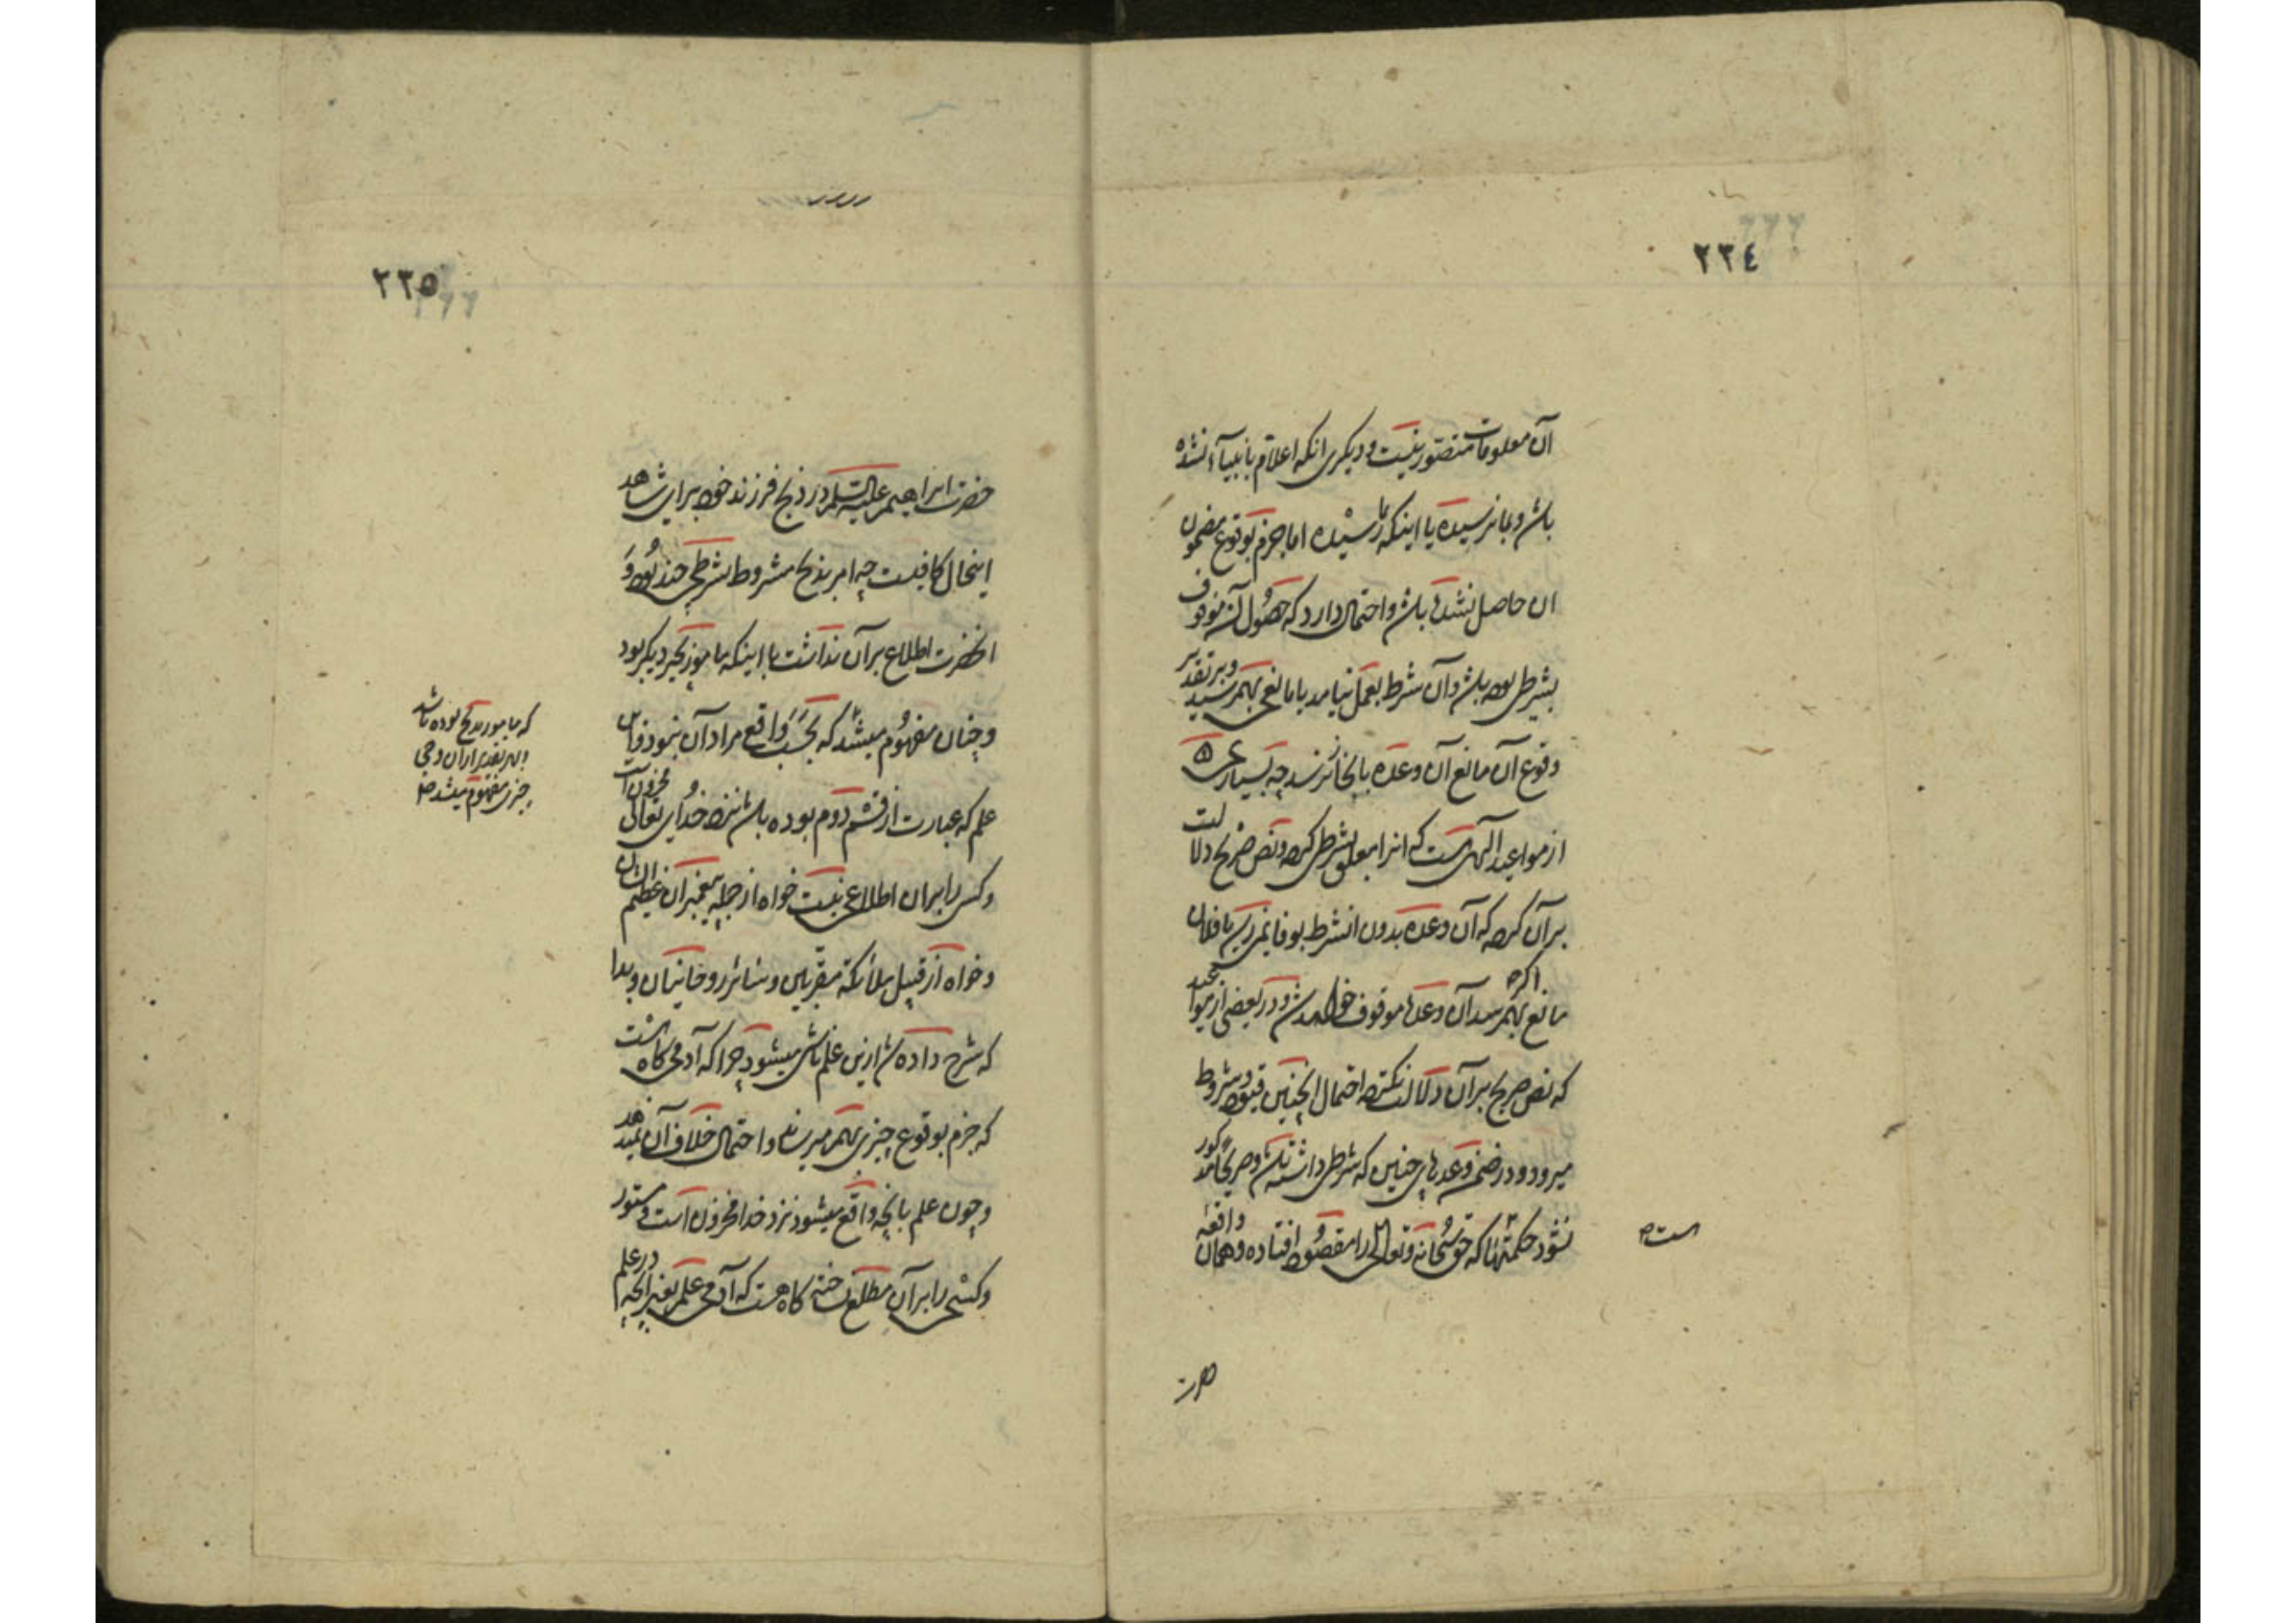 ٢٢٤
آن معلومات متصور نیست و دیگری انکه اعلام بانبیآء نشده
باشد و بما نرسیده یا اینکه رسیده اما جزم بوقوع مضمون
ان حاصل نشده باشد و احتمال دارد که حصول آن موقوف
بشرطی بوده باشد و آن شرط بعمل نیامد یا مانعی بهمرسید و بر تقدیر
وقوع آن مانع آن وعده بانجا نرسد چه بسیاری
از مواعید الهی هست که انرا معلق بشرطی کرده و نص صریح دلالت
بر آن کرده که آن وعده بدون انشرط بوفا نمیرسد یا فلان
مانع اگر بهمرسد آن وعده موقوف خواهد شد و در بعضی از مواعید
که نص صریح بر آن دلالت نکرده احتمال اینچنین قیود و شروط
میرود و در ضمن وعدهای چنین که شرطی داشته باشد و صریحًا مذکور
نشود حکمتهاست که حق سُبحانه و تعالی را مقصود افتاده و همان واقعه
است
حضرت
٢٢٥
حضرت ابراهیم علیه السلام در ذبح فرزند خود برای شاهد
اینحال کافیست چه امر بذبح مشروط بشرطی چند بوده و
انحضرت اطلاع بر آن نداشت با اینکه مامور بچیز دیگر بود
و چنان مفهوم میشد که بحسب واقع مراد آن نبود و این
علم که عبارت از قسم دوم بوده باشد نزد خدای تعالی مخزون است
و کس را بران اطلاعی نیست خواه از جمله پیغمبران عظیم الشان
و خواه از قبیل ملائکه مقربین و سائر روحانیان و بدا
که شرح داده شد ازین علم ناشی میشود چرا که آدمی گاه هست
که جزم بوقوع چیزی بهمرساند و احتمال خلاف آن نمیدهد
و چون علم بانچه واقع میشود نزد خدا مخزون است و مستور
و کسی را بر آن مطلع نساخته گاه هست که آدمی علم بغیر انچه در علم
که مامور بذبح بوده باشد
و بهر تقدیر از آن وحی
چیزی مفهوم میشد